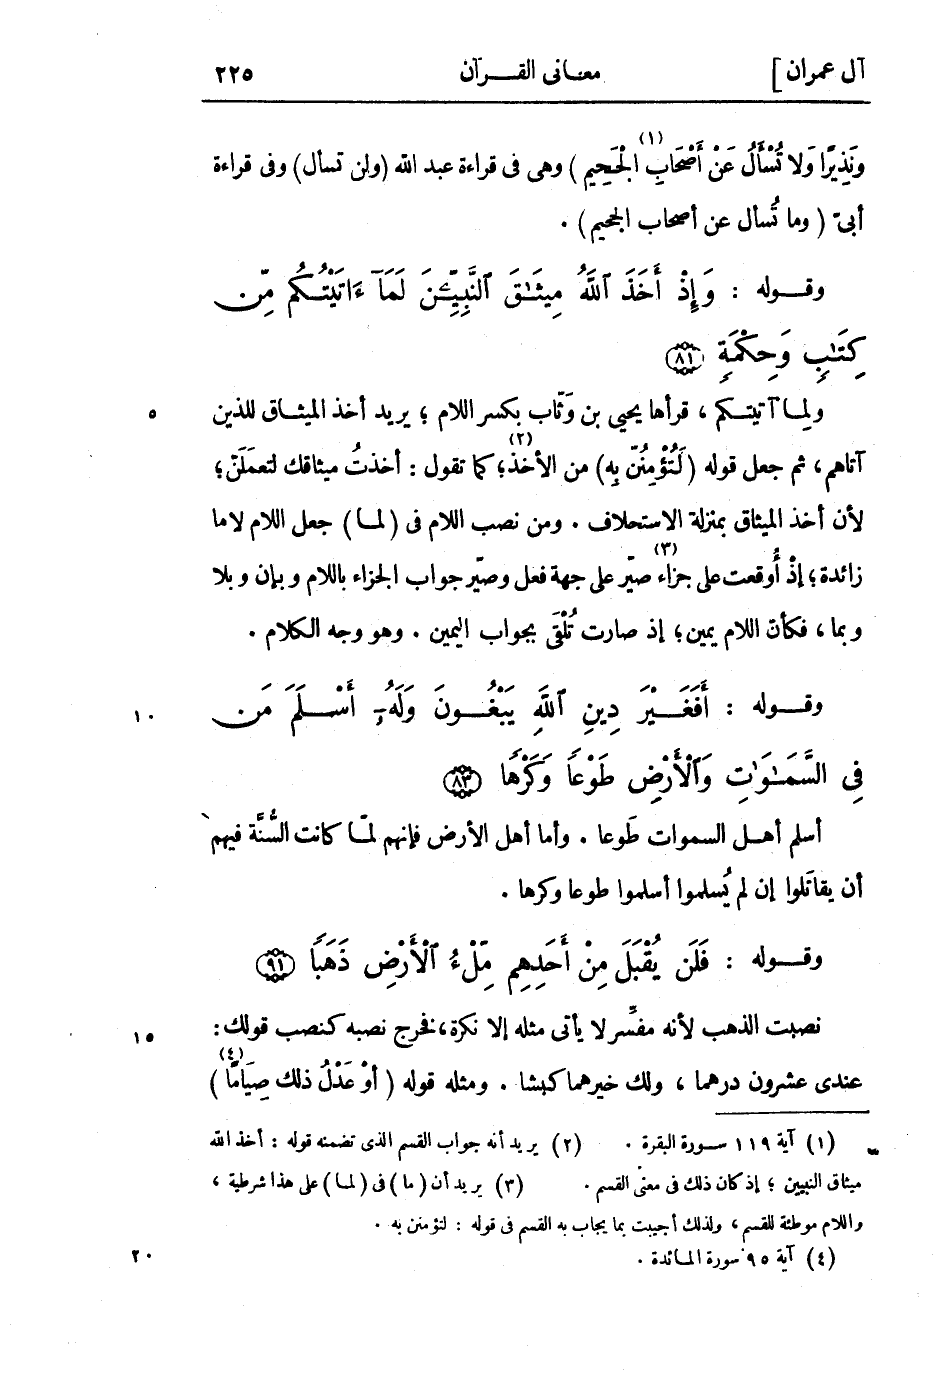 آل عمران] معانى القـرآن ٢٢٥
وَنَذِيرًا وَلا تُسْأَلُ عَنْ أَصْحَابِ الْجَحِيمِ (١)) وهى فى قراءة عبد الله (ولن تسأل) وفى قراءة
أبىّ (وما تُسأل عن أصحاب الجحيم) .
وقـوله : وَإِذْ أَخَذَ ٱللَّهُ مِيثَٰقَ ٱلنَّبِيِّـۧنَ لَمَآ ءَاتَيْتُكُم مِّن
كِتَٰبٍ وَحِكْمَةٍ ٨١
ولِما آتيتكم ، قرأها يحيى بن وَثّاب بكسر اللام ؛ يريد أخذ الميثاق للذين ٥
آتاهم ، ثم جعل قوله (لَتُؤْمِنُنّ بِه) من الأخذ (٢)؛ كما تقول : أخذتُ ميثاقك لتعمَلَنّ ؛
لأن أخذ الميثاق بمنزلة الاستحلاف . ومن نصب اللام فى (لما) جعل اللام لاما
زائدة ؛ إذْ أُوقعت على جزاء (٣) صيّر على جهة فعل وصيّر جواب الجزاء باللام وبإن وبلا
وبما ، فكأنّ اللام يمين ؛ إذ صارت تُلْقَى بجواب اليمين . وهو وجه الكلام .
وقـوله : أَفَغَيْرَ دِينِ ٱللَّهِ يَبْغُونَ وَلَهُۥٓ أَسْلَمَ مَن ١٠
فِى السَّمَٰوَٰتِ وَٱلْأَرْضِ طَوْعًا وَكَرْهًا ٨٣
أسلم أهـل السموات طَوعا . وأما أهل الأرض فإنهم لمّا كانت السُّنَّة فيهم
أن يقاتَلوا إن لم يُسلموا أسلموا طوعا وكرها .
وقـوله : فَلَن يُقْبَلَ مِنْ أَحَدِهِم مِّلْءُ ٱلْأَرْضِ ذَهَبًا ٩١
نصبت الذهب لأنه مفسِّر لا يأتى مثله إلا نكرة ، فخرج نصبه كنصب قولك : ١٥
عندى عشرون درهما ، ولك خيرهما كبشا . ومثله قوله (أَوْ عَدْلُ ذلك صِيَامًا (٤))
(١) آية ١١٩ سورة البقرة . (٢) يريد أنه جواب القسم الذى تضمنه قوله : أخذ الله
ميثاق النبيين ؛ إذ كان ذلك فى معنى القسم . (٣) يريد أن (ما) فى (لما) على هذا شرطية ،
واللام موطئة للقسم ، ولذلك أجيبت بما يجاب به القسم فى قوله : لتؤمنن به .
(٤) آية ٩٥ سورة المائدة . ٢٠